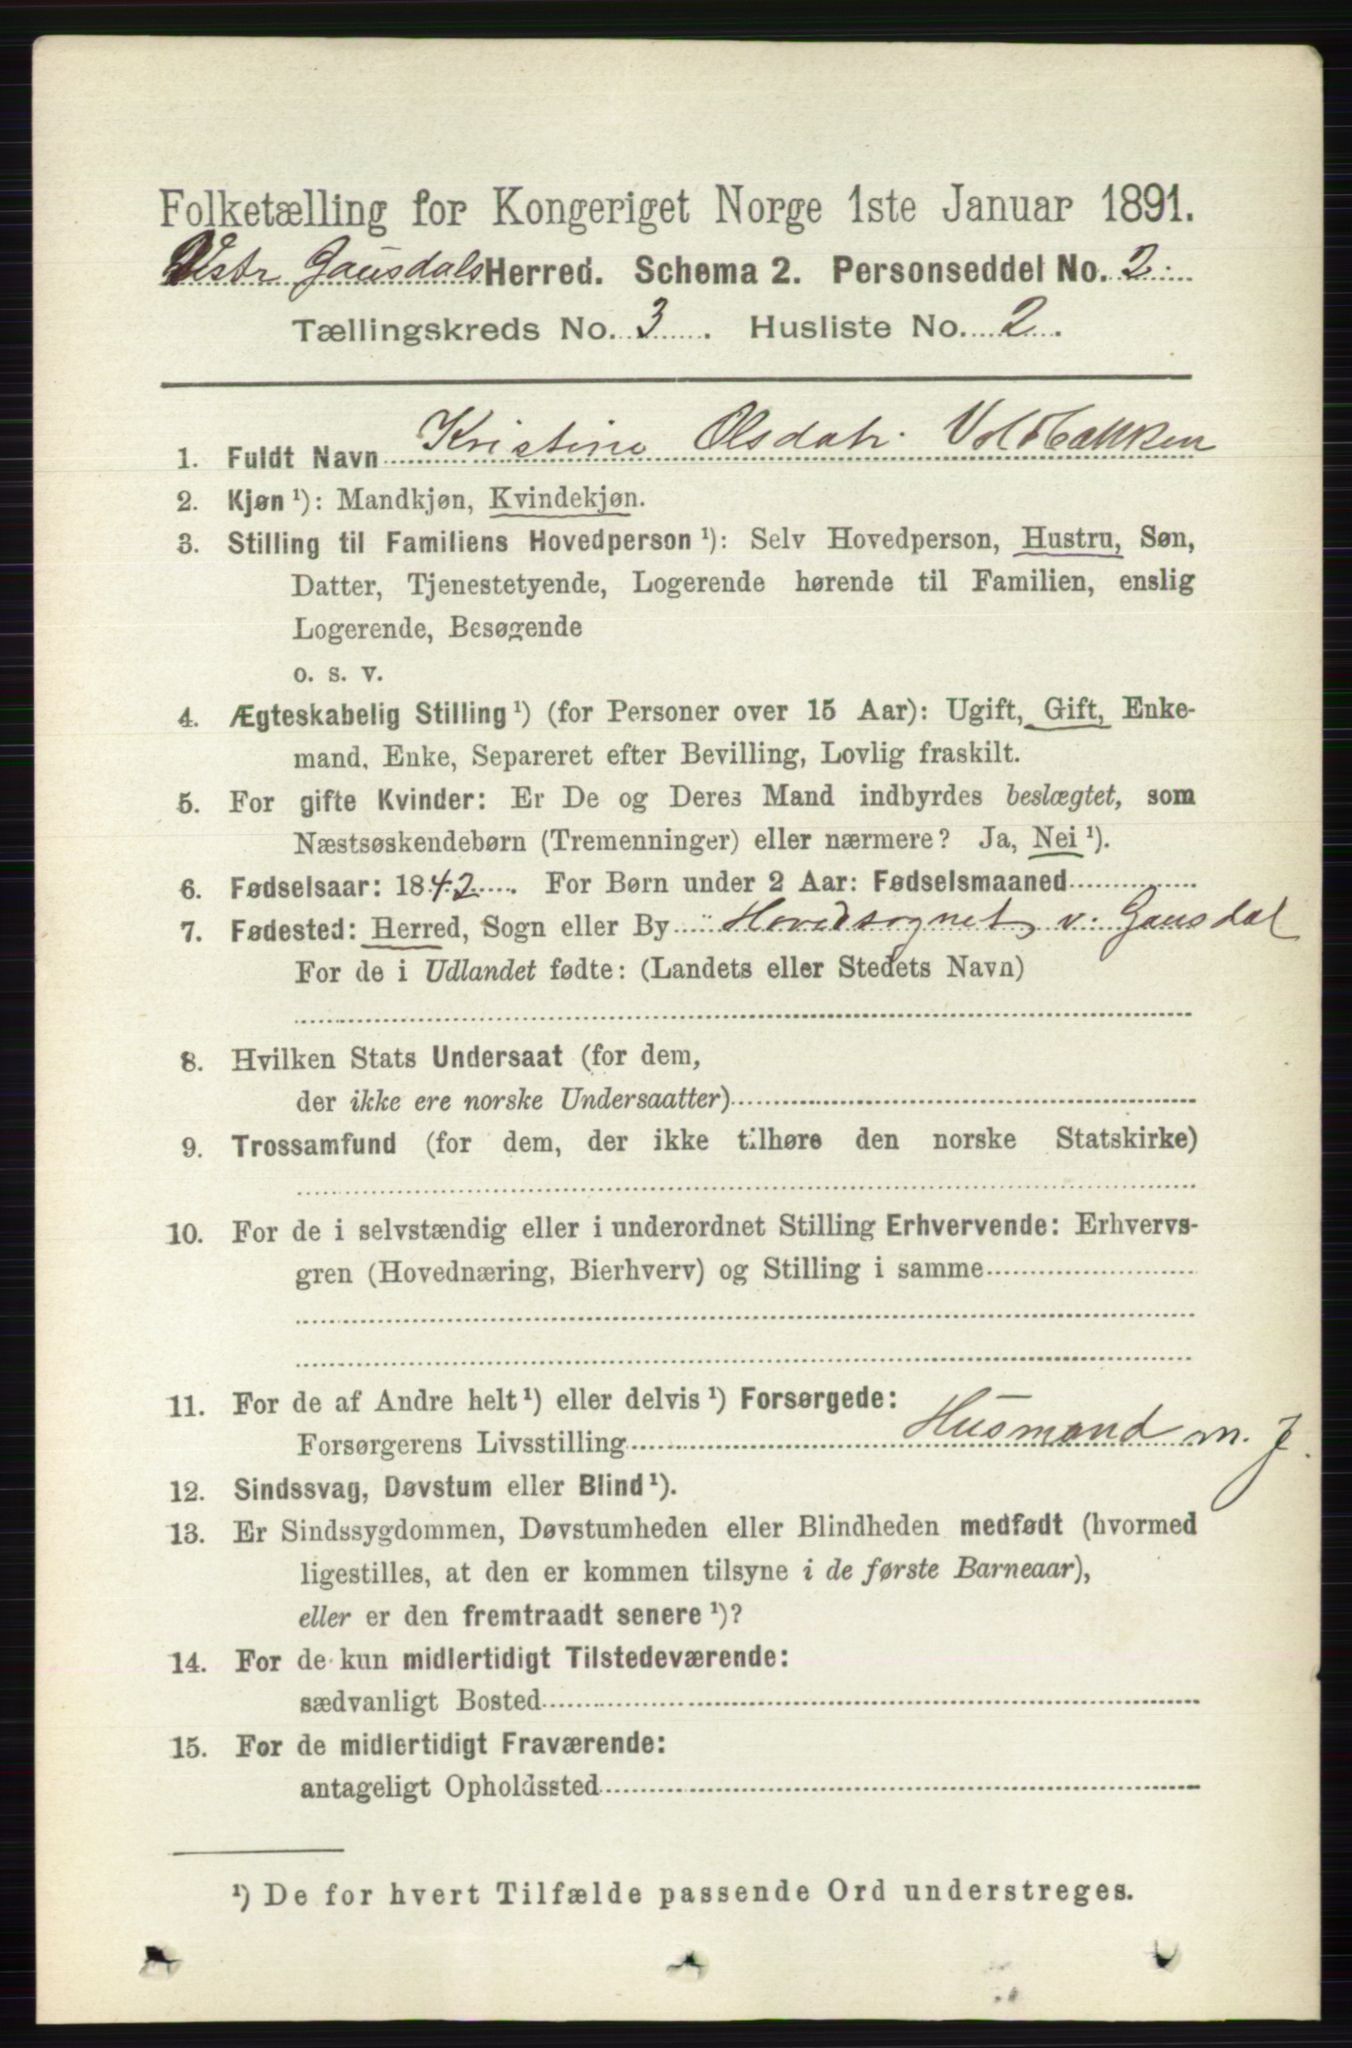 Folketælling for Kongeriget Norge 1ste Januar 1891.
Vestr Gausdals Herred. Schema 2. Personseddel No. 2.
Tællingskreds No. 3. Husliste No. 2.
1. Fuldt Navn Kristine Olsdatr. Voldbakken
2. Kjøn ¹): Mandkjøn, Kvindekjøn.
3. Stilling til Familiens Hovedperson ¹): Selv Hovedperson, Hustru, Søn,
Datter, Tjenestetyende, Logerende hørende til Familien, enslig
Logerende, Besøgende
o. s. v.
4. Ægteskabelig Stilling ¹) (for Personer over 15 Aar): Ugift, Gift, Enke-
mand, Enke, Separeret efter Bevilling, Lovlig fraskilt.
5. For gifte Kvinder: Er De og Deres Mand indbyrdes beslægtet, som
Næstsøskendebørn (Tremenninger) eller nærmere? Ja, Nei ¹).
6. Fødselsaar: 1842. For Børn under 2 Aar: Fødselsmaaned
7. Fødested: Herred, Sogn eller By Hovedsognet v. Gausdal
For de i Udlandet fødte: (Landets eller Stedets Navn)
8. Hvilken Stats Undersaat (for dem,
der ikke ere norske Undersaatter)
9. Trossamfund (for dem, der ikke tilhøre den norske Statskirke)
10. For de i selvstændig eller i underordnet Stilling Erhvervende: Erhvervs-
gren (Hovednæring, Bierhverv) og Stilling i samme
11. For de af Andre helt ¹) eller delvis ¹) Forsørgede:
Forsørgerens Livsstilling Husmand m. J.
12. Sindssvag, Døvstum eller Blind ¹).
13. Er Sindssygdommen, Døvstumheden eller Blindheden medfødt (hvormed
ligestilles, at den er kommen tilsyne i de første Barneaar),
eller er den fremtraadt senere ¹)?
14. For de kun midlertidigt Tilstedeværende:
sædvanligt Bosted
15. For de midlertidigt Fraværende:
antageligt Opholdssted
¹) De for hvert Tilfælde passende Ord understreges.